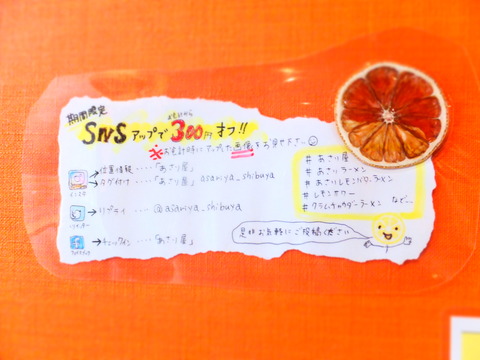 期間限定
SNSアップで300円オフ!!
※お会計時にアップした画像をお見せ下さい
→位置情報‥‥「あさり屋」
→タグ付け‥‥「あさり屋」asariya_shibuya
インスタ
→リプライ‥‥@asariya_shibuya
ツイッター
→チェックイン‥‥「あさり屋」
フェイスブック
#あさり屋
#あさりラーメン
#あさりレモンNo.ラーメン
#レモンサワー
#クラムチャウダーラーメン など…
是非お気軽にご投稿ください